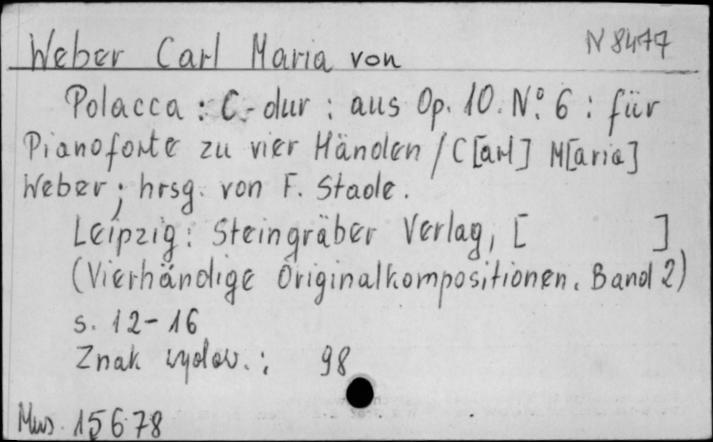 Weber Carl Maria von
N 8477
Polacca : C-dur : aus Op. 10. No. 6 : für
Pianoforte zu vier Händen / C[arl] M[aria]
Weber ; hrsg. von F. Stade.
Leipzig : Steingräber Verlag, [ ]
(Vierhändige Originalkompositionen. Band 2)
s. 12-16
Znak wydaw. : 98
Mus. 15678